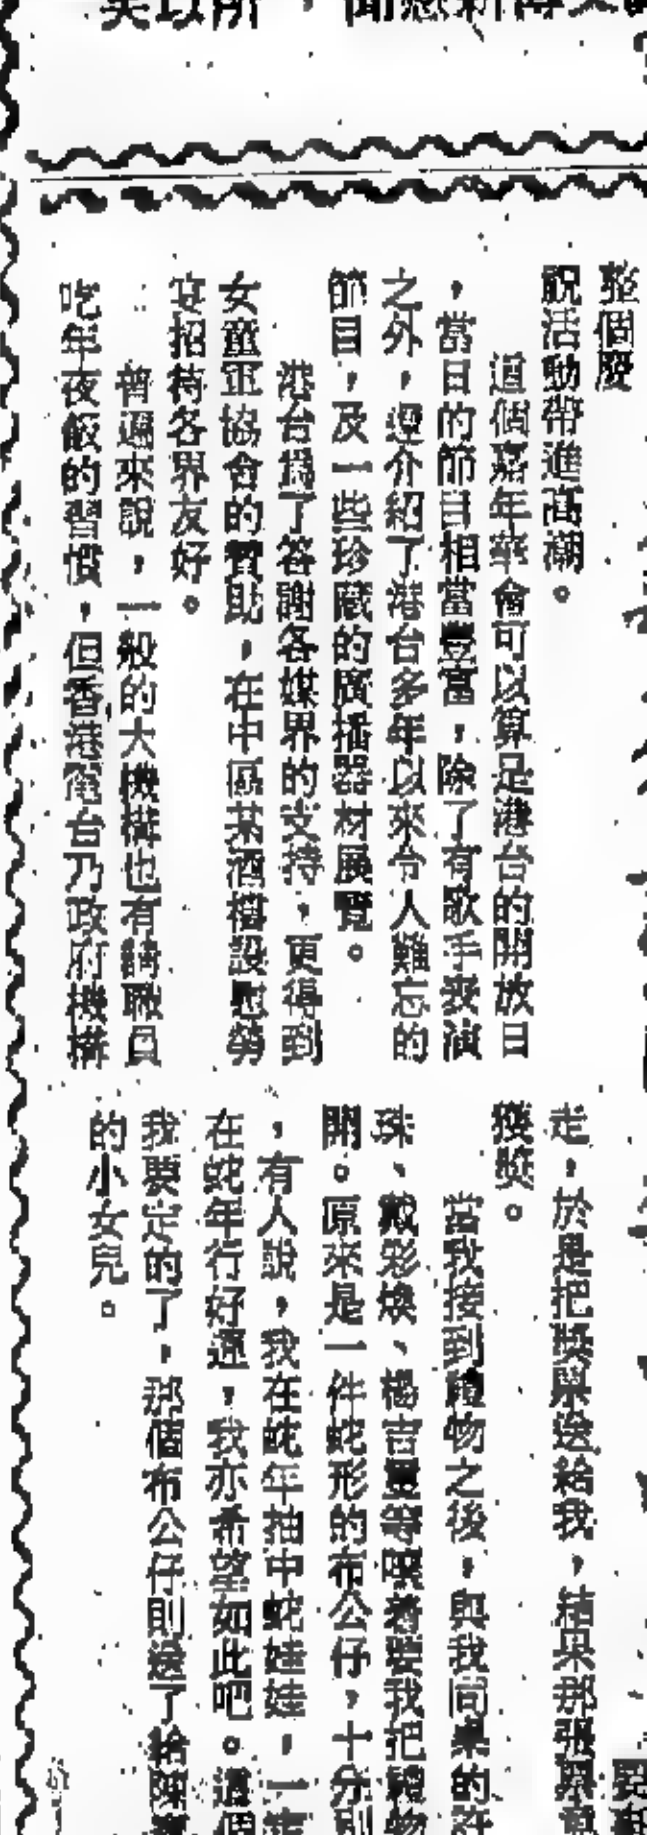 整個慶
祝活動帶進高潮。
這個嘉年華會可以算是港台的開放日
，當日的節目相當豐富，除了有歌手表演
之外，還介紹了港台多年以來令人難忘的
節目，及一些珍藏的廣播器材展覽。
港台為了答謝各媒界的支持，更得到
女童軍協會的贊助，在中區某酒樓設慰勞
宴招待各界友好。
普遍來說，一般的大機構也有請職員
吃年夜飯的習慣，但香港電台乃政府機構
走，於是把獎票送給我，結果那張票
獲獎。
當我接到禮物之後，與我同桌的許
珠、戴彩煥、楊吉璽等嚷着要我把禮物
開。原來是一件蛇形的布公仔，十分別
，有人說，我在蛇年抽中蛇娃娃，一定
在蛇年行好運，我亦希望如此吧。這個
我要定的了，那個布公仔則送了給陳
的小女兒。